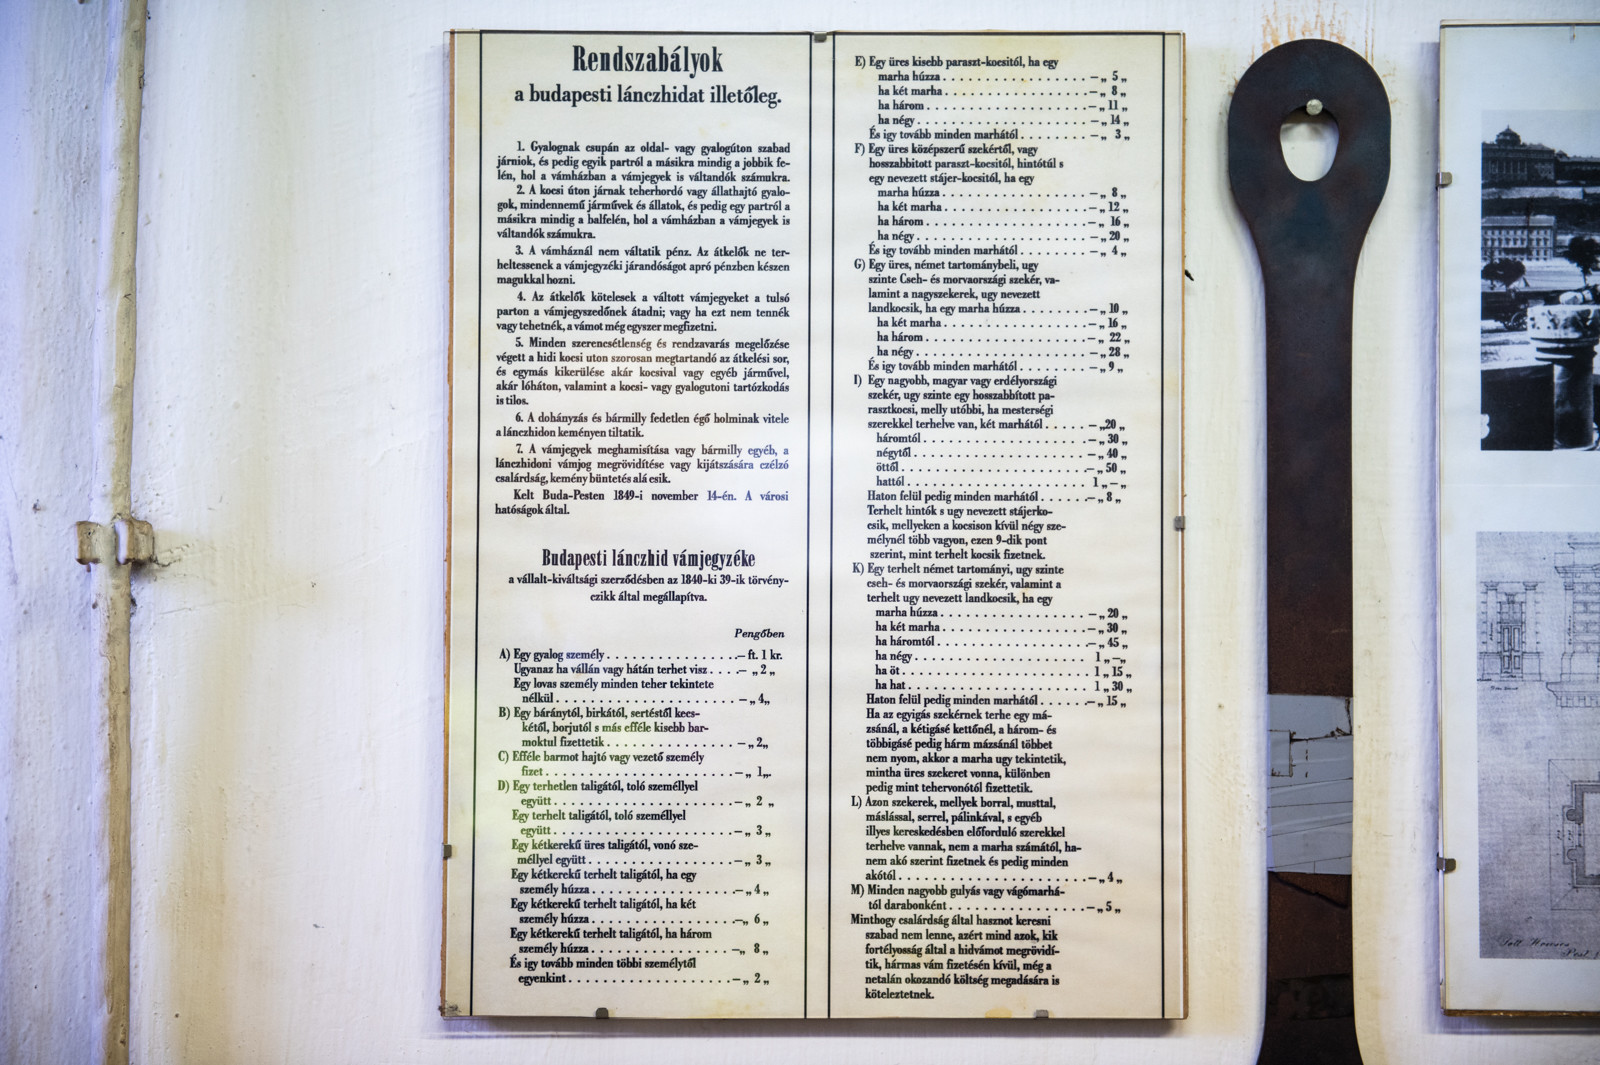 Rendszabályok
a budapesti lánczhidat illetőleg.
1. Gyalognak csupán az oldal- vagy gyalogúton szabad
járniok, és pedig egyik partról a másikra mindig a jobbik fe-
lén, hol a vámházban a vámjegyek is váltandók számukra.
2. A kocsi úton járnak teherhordó vagy állathajtó gyalo-
gok, mindennemű járművek és állatok, és pedig egy partról a
másikra mindig a balfelén, hol a vámházban a vámjegyek is
váltandók számukra.
3. A vámháznál nem váltatik pénz. Az átkelők ne ter-
heltessenek a vámjegyzéki járandóságot apró pénzben készen
magukkal hozni.
4. Az átkelők kötelesek a váltott vámjegyeket a tulsó
parton a vámjegyszedőnek átadni; vagy ha ezt nem tennék
vagy tehetnék, a vámot még egyszer megfizetni.
5. Minden szerencsétlenség és rendzavarás megelőzése
végett a hidi kocsi uton szorosan megtartandó az átkelési sor,
és egymás kikerülése akár kocsival vagy egyéb járművel,
akár lóháton, valamint a kocsi- vagy gyalogutoni tartózkodás
is tilos.
6. A dohányzás és bármilly fedetlen égő holminak vitele
a lánczhidon keményen tiltatik.
7. A vámjegyek meghamisítása vagy bármilly egyéb, a
lánczhidoni vámjog megrövidítése vagy kijátszására czélzó
csalárdság, kemény büntetés alá esik.
Kelt Buda-Pesten 1849-i november 14-én. A városi
hatóságok által.
Budapesti lánczhid vámjegyzéke
a vállalt-kiváltsági szerződésben az 1840-ki 39-ik törvény-
czikk által megállapítva.
Pengőben
A) Egy gyalog személy . . . . . . . . . . . . . . . .— ft. 1 kr.
Ugyanaz ha vállán vagy hátán terhet visz . . . .— „ 2 „
Egy lovas személy minden teher tekintete
nélkül . . . . . . . . . . . . . . . . . . . . . . — „ 4„
B) Egy báránytól, birkától, sertéstől kecs-
kétől, borjutól s más efféle kisebb bar-
moktul fizettetik . . . . . . . . . . . . . . . — „ 2„
C) Efféle barmot hajtó vagy vezető személy
fizet . . . . . . . . . . . . . . . . . . . . . . .— „ 1„.
D) Egy terhetlen taligától, toló személlyel
együtt . . . . . . . . . . . . . . . . . . . . . .— „ 2 „
Egy terhelt taligától, toló személlyel
együtt . . . . . . . . . . . . . . . . . . . . . .— „ 3 „
Egy kétkerekű üres taligától, vonó sze-
méllyel együtt . . . . . . . . . . . . . . . . . — „ 3 „
Egy kétkerekű terhelt taligától, ha egy
személy húzza . . . . . . . . . . . . . . . . .— „ 4 „
Egy kétkerekű terhelt taligától, ha két
személy húzza . . . . . . . . . . . . . . . . .—„ 6 „
Egy kétkerekű terhelt taligától, ha három
személy húzza . . . . . . . . . . . . . . . . .—„ 8 „
És igy tovább minden többi személytől
egyenkint . . . . . . . . . . . . . . . . . . . .— „ 2 „
E) Egy üres kisebb paraszt-kocsitól, ha egy
marha húzza . . . . . . . . . . . . . . . . . . —„ 5 „
ha két marha . . . . . . . . . . . . . . . . . . — „ 8 „
ha három . . . . . . . . . . . . . . . . . . . . — „ 11 „
ha négy . . . . . . . . . . . . . . . . . . . . . —„ 14 „
És igy tovább minden marhától . . . . . . . . — „ 3 „
F) Egy üres középszerű szekértől, vagy
hosszabbitott paraszt-kocsitól, hintótúl s
egy nevezett stájer-kocsitól, ha egy
marha húzza . . . . . . . . . . . . . . . . . . —„ 8 „
ha két marha . . . . . . . . . . . . . . . . . . — „ 12 „
ha három . . . . . . . . . . . . . . . . . . . . — „ 16 „
ha négy . . . . . . . . . . . . . . . . . . . . . —„20 „
És igy tovább minden marhától . . . . . . . . — „ 4 „
G) Egy üres, német tartománybeli, ugy
szinte Cseh- és morvaországi szekér, va-
lamint a nagyszekerek, ugy nevezett
landkocsik, ha egy marha húzza . . . . . . . . —„ 10 „
ha két marha . . . . . . . . . . . . . . . . . . —„ 16 „
ha három . . . . . . . . . . . . . . . . . . . . — „ 22 „
ha négy . . . . . . . . . . . . . . . . . . . . . —„28 „
És igy tovább minden marhától . . . . . . . . —„ 9 „
I) Egy nagyobb, magyar vagy erdélyországi
szekér, ugy szinte egy hosszabbított pa-
rasztkocsi, melly utóbbi, ha mesterségi
szerekkel terhelve van, két marhától . . . . . — „20 „
háromtól . . . . . . . . . . . . . . . . . . . . —„ 30 „
négytől . . . . . . . . . . . . . . . . . . . . . —„ 40 „
öttől . . . . . . . . . . . . . . . . . . . . . . .—„ 50 „
hattól . . . . . . . . . . . . . . . . . . . . . . 1 „—„
Haton felül pedig minden marhától . . . . . .—„ 8 „
Terhelt hintók s ugy nevezett stájerko-
csik, mellyeken a kocsison kívül négy sze-
mélynél több vagyon, ezen 9-dik pont
szerint, mint terhelt kocsik fizetnek.
K) Egy terhelt német tartományi, ugy szinte
cseh- és morvaországi szekér, valamint a
terhelt ugy nevezett landkocsik, ha egy
marha húzza . . . . . . . . . . . . . . . . . . —„ 20 „
ha két marha . . . . . . . . . . . . . . . . . . —„ 30 „
ha háromtól . . . . . . . . . . . . . . . . . . .—„ 45 „
ha négy . . . . . . . . . . . . . . . . . . . . . 1 „—„
ha öt . . . . . . . . . . . . . . . . . . . . . . . 1 „ 15 „
ha hat . . . . . . . . . . . . . . . . . . . . . . 1 „ 30 „
Haton felül pedig minden marhától . . . . . .—„ 15 „
Ha az egyigás szekérnek terhe egy má-
zsánál, a kétigásé kettőnél, a három- és
többigásé pedig hárm mázsánál többet
nem nyom, akkor a marha ugy tekintetik,
mintha üres szekeret vonna, különben
pedig mint tehervonótól fizettetik.
L) Azon szekerek, mellyek borral, musttal,
máslással, serrel, pálinkával, s egyéb
illyes kereskedésben előforduló szerekkel
terhelve vannak, nem a marha számától, ha-
nem akó szerint fizetnek és pedig minden
akótól . . . . . . . . . . . . . . . . . . . . . . .—„ 4 „
M) Minden nagyobb gulyás vagy vágómarhá-
tól darabonként . . . . . . . . . . . . . . . . .—„ 5 „
Minthogy csalárdság által hasznot keresni
szabad nem lenne, azért mind azok, kik
fortélyosság által a hidvámot megrövidí-
tik, hármas vám fizetésén kívül, még a
netalán okozandó költség megadására is
köteleztetnek.